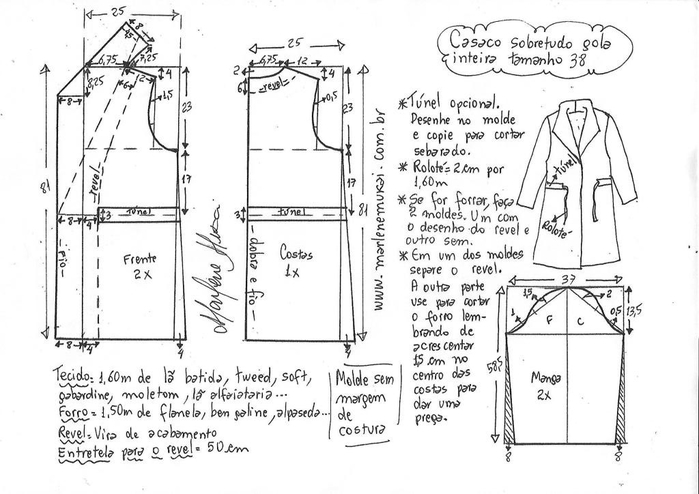 Casaco sobretudo gola
inteira tamanho 38
25
8
15
7,25
6,75
12
4
6
8
8,25
1,5
23
17
81
revel
3
túnel
8
4
Frente
2x
fio
8
4
4
25
6,75
12
2
4
6
revel
0,5
23
17
81
3
túnel
Costas
1x
dobra e fio
4
www.marlenemukai.com.br
*Túnel opcional.
Desenhe no molde
e copie para cortar
sebarado.
*Rolotê=2cm por
1,60m
*Se for forrar, faça
2 moldes. Um com
o desenho do revel e
outro sem.
*Em um dos moldes
separe o revel.
A outra parte
use para cortar
o forro lem-
brando de
acrescentar
15cm no
centro das
costas para
dar uma
prega.
túnel
Rolotê
37
1,5
2
1
F
C
0,5
13,5
58,5
Manga
2x
8
8
Tecido=1,60m de lã batida, tweed, soft,
gabardine, moletom, lã alfaiataria...
Forro=1,50m de flanela, bengaline, alpaseda...
Revel=Vira de acabamento
Entretela para o revel=50cm
Molde sem
margem
de
costura